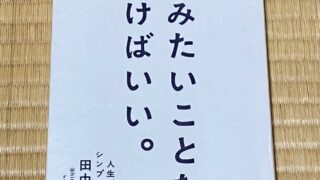 みたいことを
けばいい。
人生
シンプ
田中